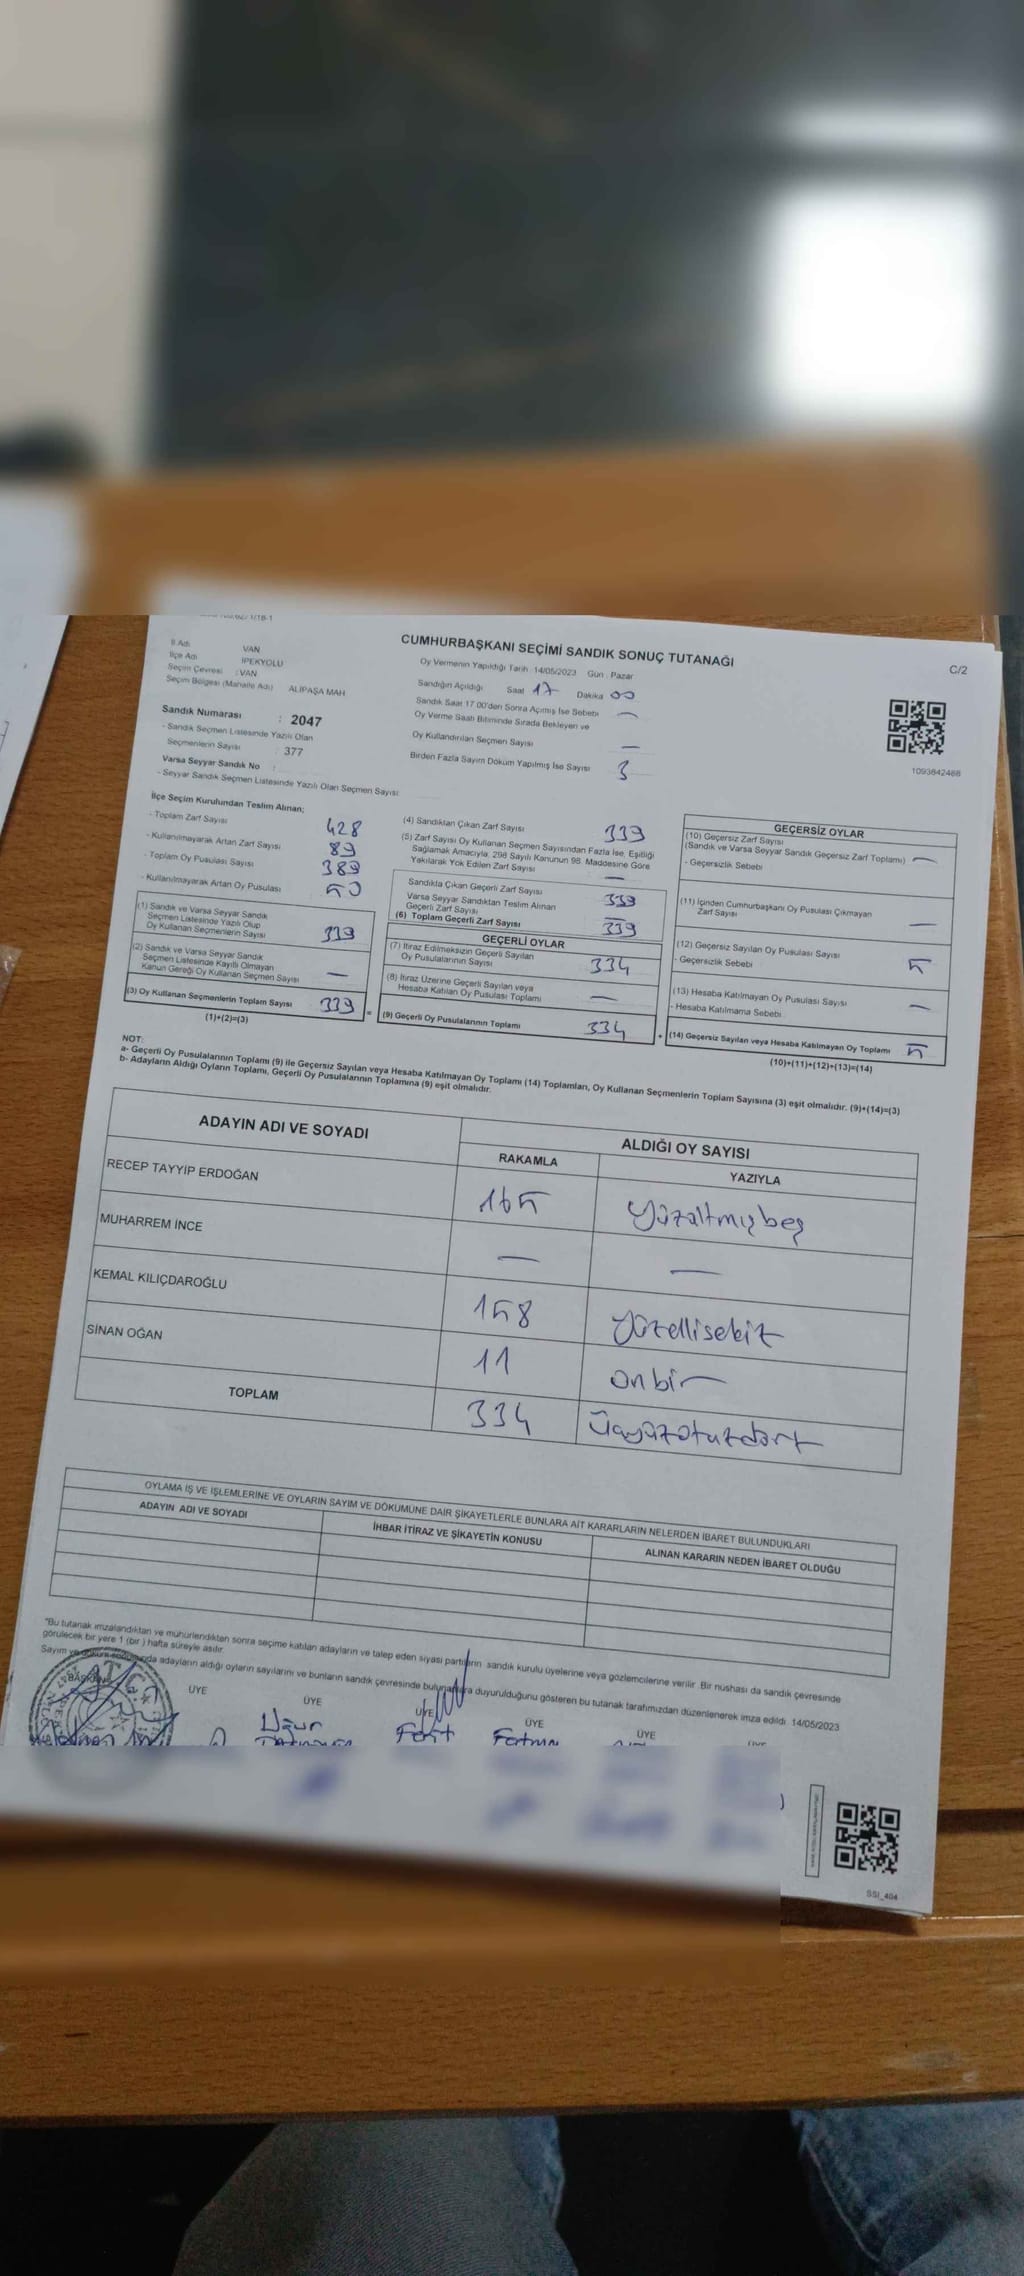 CUMHURBAŞKANI SEÇİMİ SANDIK SONUÇ TUTANAĞI
C/2
İl Adı VAN
İlçe Adı İPEKYOLU
Seçim Çevresi : VAN
Seçim Bölgesi (Mahalle Adı) ALİPAŞA MAH.
Oy Vermenin Yapıldığı Tarih: 14/05/2023 Gün : Pazar
Sandığın Açıldığı Saat 17 Dakika 00
Sandık Saat 17.00'den Sonra Açılmış İse Sebebi —
Oy Verme Saati Bitiminde Sırada Bekleyen ve
Oy Kullandırılan Seçmen Sayısı —
Birden Fazla Sayım Döküm Yapılmış İse Sayısı 3
1093842488
Sandık Numarası : 2047
- Sandık Seçmen Listesinde Yazılı Olan
Seçmenlerin Sayısı : 377
Varsa Seyyar Sandık No :
- Seyyar Sandık Seçmen Listesinde Yazılı Olan Seçmen Sayısı:
İlçe Seçim Kurulundan Teslim Alınan;
- Toplam Zarf Sayısı 428
- Kullanılmayarak Artan Zarf Sayısı 89
- Toplam Oy Pusulası Sayısı 389
- Kullanılmayarak Artan Oy Pusulası 50
(1) Sandık ve Varsa Seyyar Sandık
Seçmen Listesinde Yazılı Olup
Oy Kullanan Seçmenlerin Sayısı 339
(2) Sandık ve Varsa Seyyar Sandık
Seçmen Listesinde Kayıtlı Olmayan
Kanun Gereği Oy Kullanan Seçmen Sayısı —
(3) Oy Kullanan Seçmenlerin Toplam Sayısı 339
(1)+(2)=(3)
(4) Sandıktan Çıkan Zarf Sayısı 339
(5) Zarf Sayısı Oy Kullanan Seçmen Sayısından Fazla İse, Eşitliği
Sağlamak Amacıyla, 298 Sayılı Kanunun 98. Maddesine Göre
Yakılarak Yok Edilen Zarf Sayısı —
Sandıkta Çıkan Geçerli Zarf Sayısı 339
Varsa Seyyar Sandıktan Teslim Alınan
Geçerli Zarf Sayısı —
(6) Toplam Geçerli Zarf Sayısı 339
GEÇERLİ OYLAR
(7) İtiraz Edilmeksizin Geçerli Sayılan
Oy Pusulalarının Sayısı 334
(8) İtiraz Üzerine Geçerli Sayılan veya
Hesaba Katılan Oy Pusulası Toplamı —
(9) Geçerli Oy Pusulalarının Toplamı 334
GEÇERSİZ OYLAR
(10) Geçersiz Zarf Sayısı
(Sandık ve Varsa Seyyar Sandık Geçersiz Zarf Toplamı) —
- Geçersizlik Sebebi
(11) İçinden Cumhurbaşkanı Oy Pusulası Çıkmayan
Zarf Sayısı —
(12) Geçersiz Sayılan Oy Pusulası Sayısı 5
- Geçersizlik Sebebi
(13) Hesaba Katılmayan Oy Pusulası Sayısı —
- Hesaba Katılmama Sebebi
(14) Geçersiz Sayılan veya Hesaba Katılmayan Oy Toplamı 5
(10)+(11)+(12)+(13)=(14)
NOT:
a- Geçerli Oy Pusulalarının Toplamı (9) ile Geçersiz Sayılan veya Hesaba Katılmayan Oy Toplamı (14) Toplamları, Oy Kullanan Seçmenlerin Toplam Sayısına (3) eşit olmalıdır. (9)+(14)=(3)
b- Adayların Aldığı Oyların Toplamı, Geçerli Oy Pusulalarının Toplamına (9) eşit olmalıdır.
ADAYIN ADI VE SOYADI ALDIĞI OY SAYISI
RAKAMLA YAZIYLA
RECEP TAYYİP ERDOĞAN 165 yüzaltmışbeş
MUHARREM İNCE — —
KEMAL KILIÇDAROĞLU 158 yüzellisekiz
SİNAN OĞAN 11 onbir
TOPLAM 334 üçyüzotuzdört
OYLAMA İŞ VE İŞLEMLERİNE VE OYLARIN SAYIM VE DÖKÜMÜNE DAİR ŞİKAYETLERLE BUNLARA AİT KARARLARIN NELERDEN İBARET BULUNDUKLARI
ADAYIN ADI VE SOYADI İHBAR İTİRAZ VE ŞİKAYETİN KONUSU ALINAN KARARIN NEDEN İBARET OLDUĞU
"Bu tutanak imzalandıktan ve mühürlendikten sonra seçime katılan adayların ve talep eden siyasi partilerin sandık kurulu üyelerine veya gözlemcilerine verilir. Bir nüshası da sandık çevresinde
görülecek bir yere 1 (bir) hafta süreyle asılır.
Sayım ve adayların aldığı oyların sayılarını ve bunların sandık çevresinde bulunanlara duyurulduğunu gösteren bu tutanak tarafımızdan düzenlenerek imza edildi. 14/05/2023
BAŞKAN ÜYE ÜYE ÜYE ÜYE ÜYE ÜYE
Uğur Ferit Fatma
SSI_404